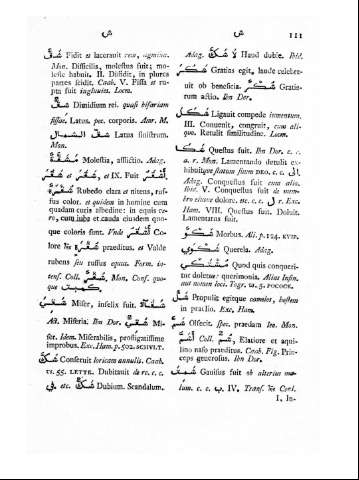 ش ش 111
شقّ Fidit et laceravit rem, agmina.
Mon. Difficilis, molestus fuit; mo-
leste habuit. II. Diffidit, in plures
partes scidit. Caab. V. Fissa et ru-
pta fuit
شقّ Dimidium rei. quasi bifariam
fissus. Latus. pec. corporis. Amr. M.
شقّ الشمال Latus sinistrum.
Mon.
مشقّة Molestia, afflictio. Adag.
شقر et شقر, et IX. Fuit أشقر
شقرة Rubedo clara et nitens, ruf-
fus color. et quidem in homine cum
quadam cutis albedine: in equis ve-
ro, cum juba et cauda ejusdem quo-
que coloris sunt. Unde أشقر Co-
lore praeditus. et Valde
rubens seu russus equus. Form. in-
tens. Coll. شقر. Mon. Conf. quo-
que كميت
شقي Miser, infelix fuit. شقاوة
Act. Miseria. Ibn Dor. شقي Mi-
ser. Idem. Miserabilis, profligatissime
improbus. Exc. Ham. p. 502. SCHULT.
شكّ Conseruit loricam annulis. Caab.
vs. 55. LETTE. Dubitavit de re. c. c.
في, etc. شكّ Dubium. Scandalum.
Adag. لا شكّ Haud dubie. Ibid.
شكر Gratias egit, laude celebra-
vit ob beneficia. شكر Gratia-
rum actio. Ibn Dor.
شكل Ligavit compede iumentum.
III. Convenit, congruit, cum ali-
quo. Retulit similitudine. Locm.
شكا Questus fuit. Ibn Dor. c. c.
a. r. Mon. Lamentando detulit ex-
hibuitque statum suum DEO. c. c. إلى.
Adag. Conquestus fuit cum alio.
Ibid. V. Conquestus fuit de mem-
bro etiam dolore. etc. c. c. ل r. Exc.
Ham. VIII. Questus fuit. Doluit.
Lamentatus fuit.
شكو Morbus. Ali. p. 124. KUIP.
شكوي Querela. Adag.
مشتكي Quod quis conqueri-
tur doletur: querimonia. Alias Infin.
aut nomen loci. Togr. vs. 5. POCOCK.
شلّ Propulit egitque camelos, hostem
in praelio. Exc. Ham.
شمّ Olfecit. Spec. praedam leo. Mon.
أشمّ Coll. شمّ, Elatiore et aqui-
lino naso praeditus. Caab. Fig. Prin-
ceps generosus. Ibn Dor.
شمت Gavisus fuit ob alterius ma-
lum. c. c. ب. IV. Trans.
I, In-